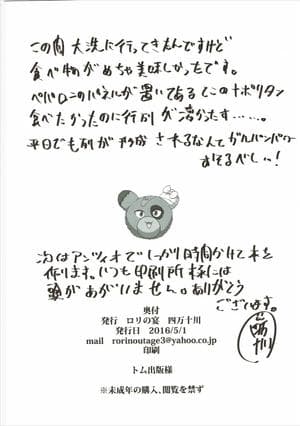 この間 大洗に行ってきたんですけど
食べ物がめちゃ美味しかったです。
ペパロニのパネルが置いてあるとこのナポリタン
食べたかったのに行列が凄かったす……。
平日でも列が形成されるなんてガルパンパワー
おそるべしぃ！
次はアンツィオでしっかり時間かけて本を
作ります。いつも印刷所様には
頭があがいません。ありがとう
ございます。
四万十川
奥付
発行　ロリの宴　四万十川
発行日　2016/5/1
mail　rorinoutage3@yahoo.co.jp
印刷
トム出版様
※未成年の購入、閲覧を禁ず